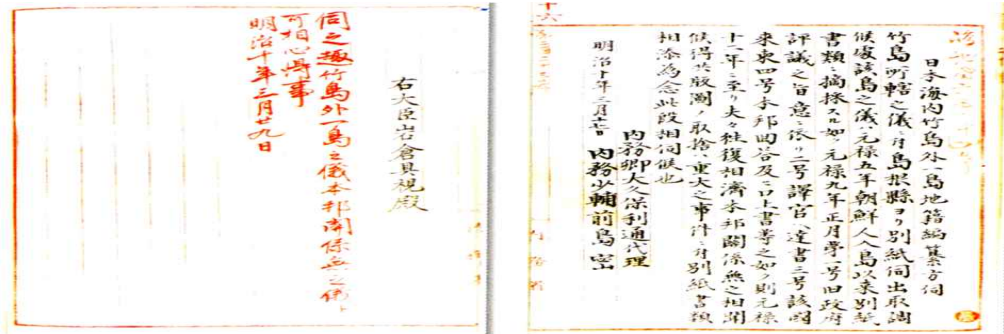 日本海内竹島外一島地籍編纂方伺
竹島所轄之儀ニ付島根縣ヨリ別紙伺出取調
候處該島之儀ハ元禄五年朝鮮人入島以来別紙
書類ニ摘採スル如ク元禄九年正月第一号旧政府
評議之旨意ニ依リ二号譯官ヘ達書三号該國
来柬四号本邦回答及ヒ口上書等之如ク則元禄
十二年ニ至リ夫々往復相済本邦關係無之相聞
候得共版圖ノ取捨ハ重大之事件ニ付別紙書類
相添為念此段相伺候也
内務卿大久保利通代理
明治十年三月十七日 内務少輔前島密
右大臣岩倉具視殿
伺之趣竹島外一島之儀本邦関係無之儀ト
可相心得事
明治十年三月廿九日